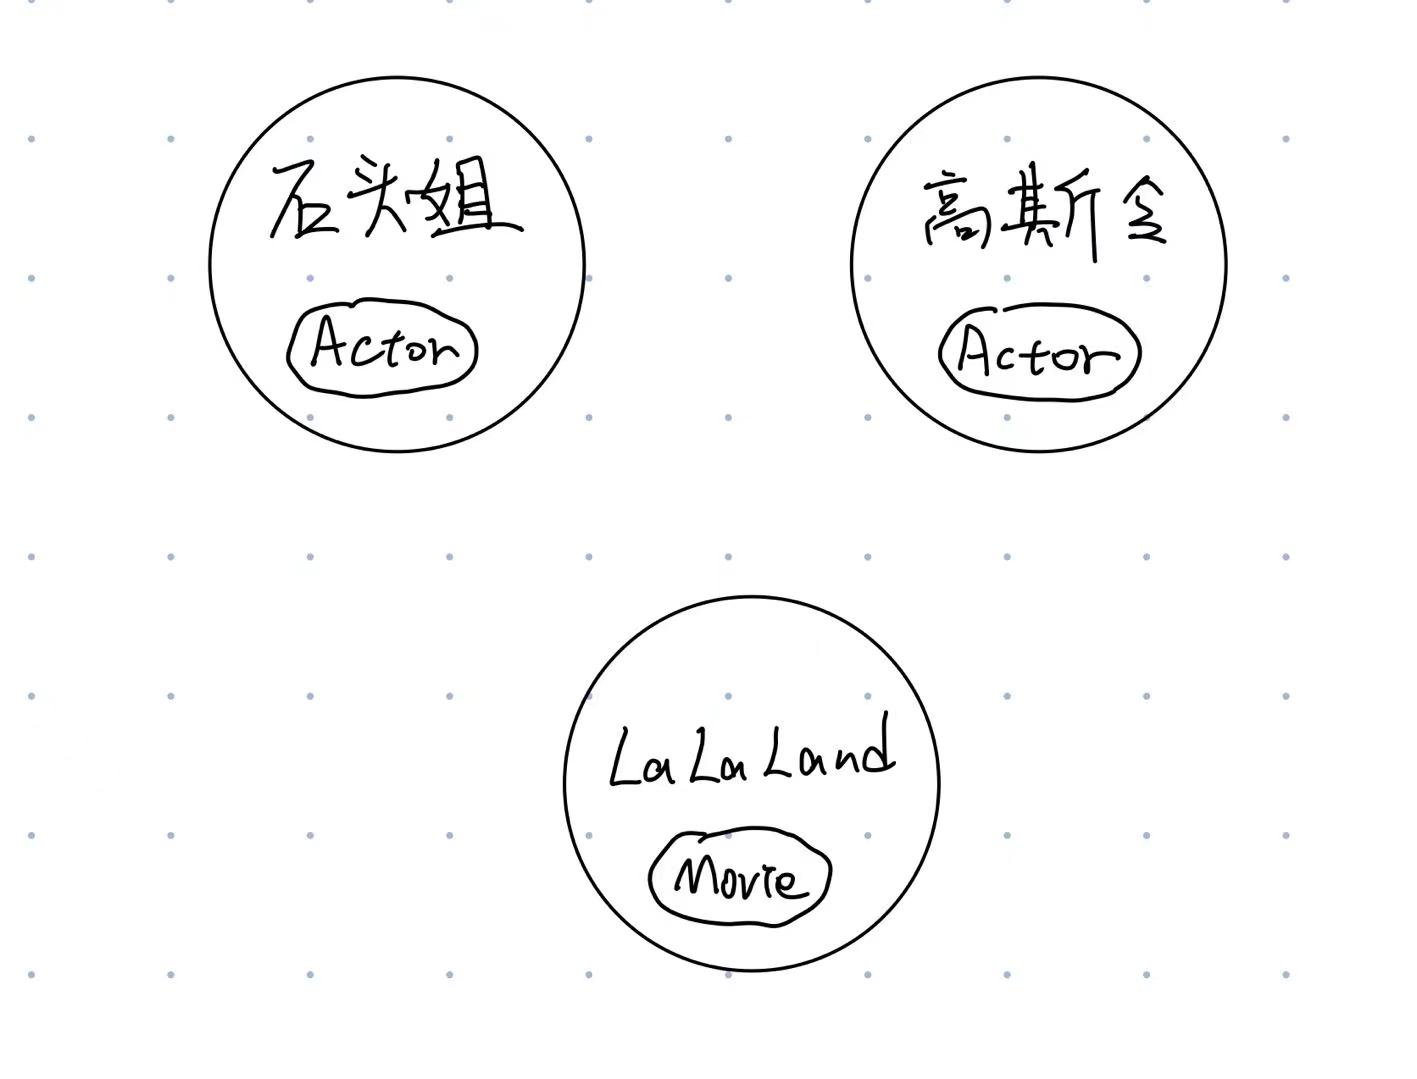 石头姐
Actor
高斯令
Actor
La La Land
Movie